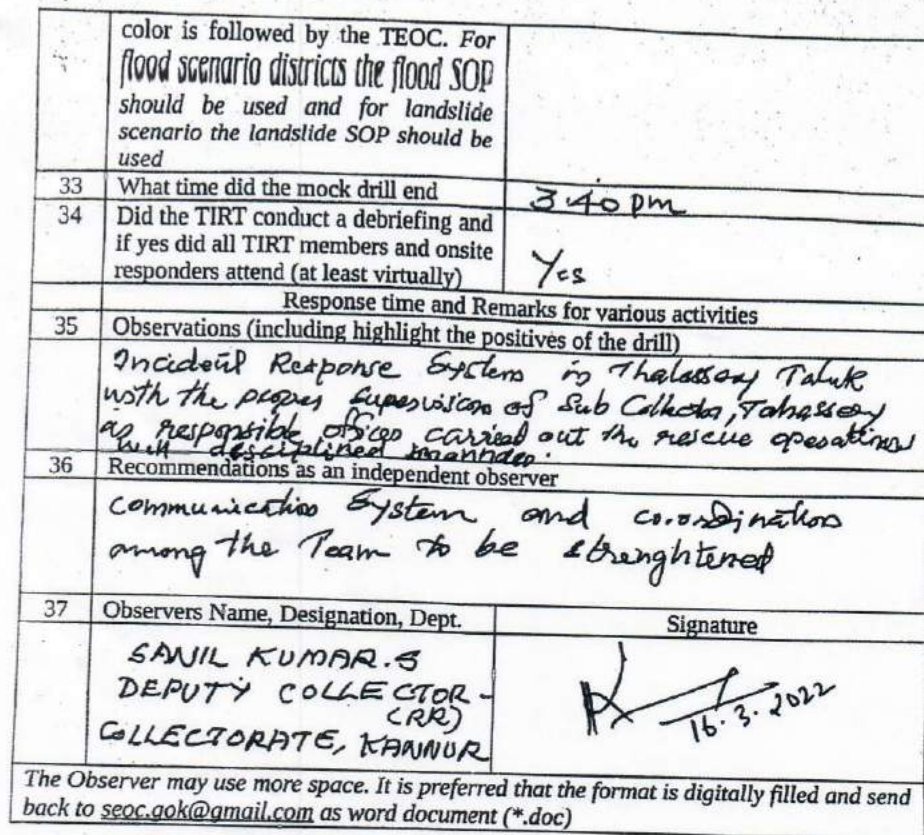 color is followed by the TEOC. For
flood scenario districts the flood SOP
should be used and for landslide
scenario the landslide SOP should be
used
33 What time did the mock drill end 3.40 pm
34 Did the TIRT conduct a debriefing and
if yes did all TIRT members and onsite
responders attend (at least virtually) Yes
Response time and Remarks for various activities
35 Observations (including highlight the positives of the drill)
Incident Response System in Thalassery Taluk
with the proper supervision of Sub Collector, Tahassery
as responsible officer carried out the rescue operations
with desciplined mannder.
36 Recommendations as an independent observer
Communication System and co.ordination
among the Team to be strenghtened
37 Observers Name, Designation, Dept. Signature
SANIL KUMAR.S
DEPUTY COLLECTOR -
(RR)
COLLECTORATE, KANNUR
16.3.2022
The Observer may use more space. It is preferred that the format is digitally filled and send
back to seoc.gok@gmail.com as word document (*.doc)